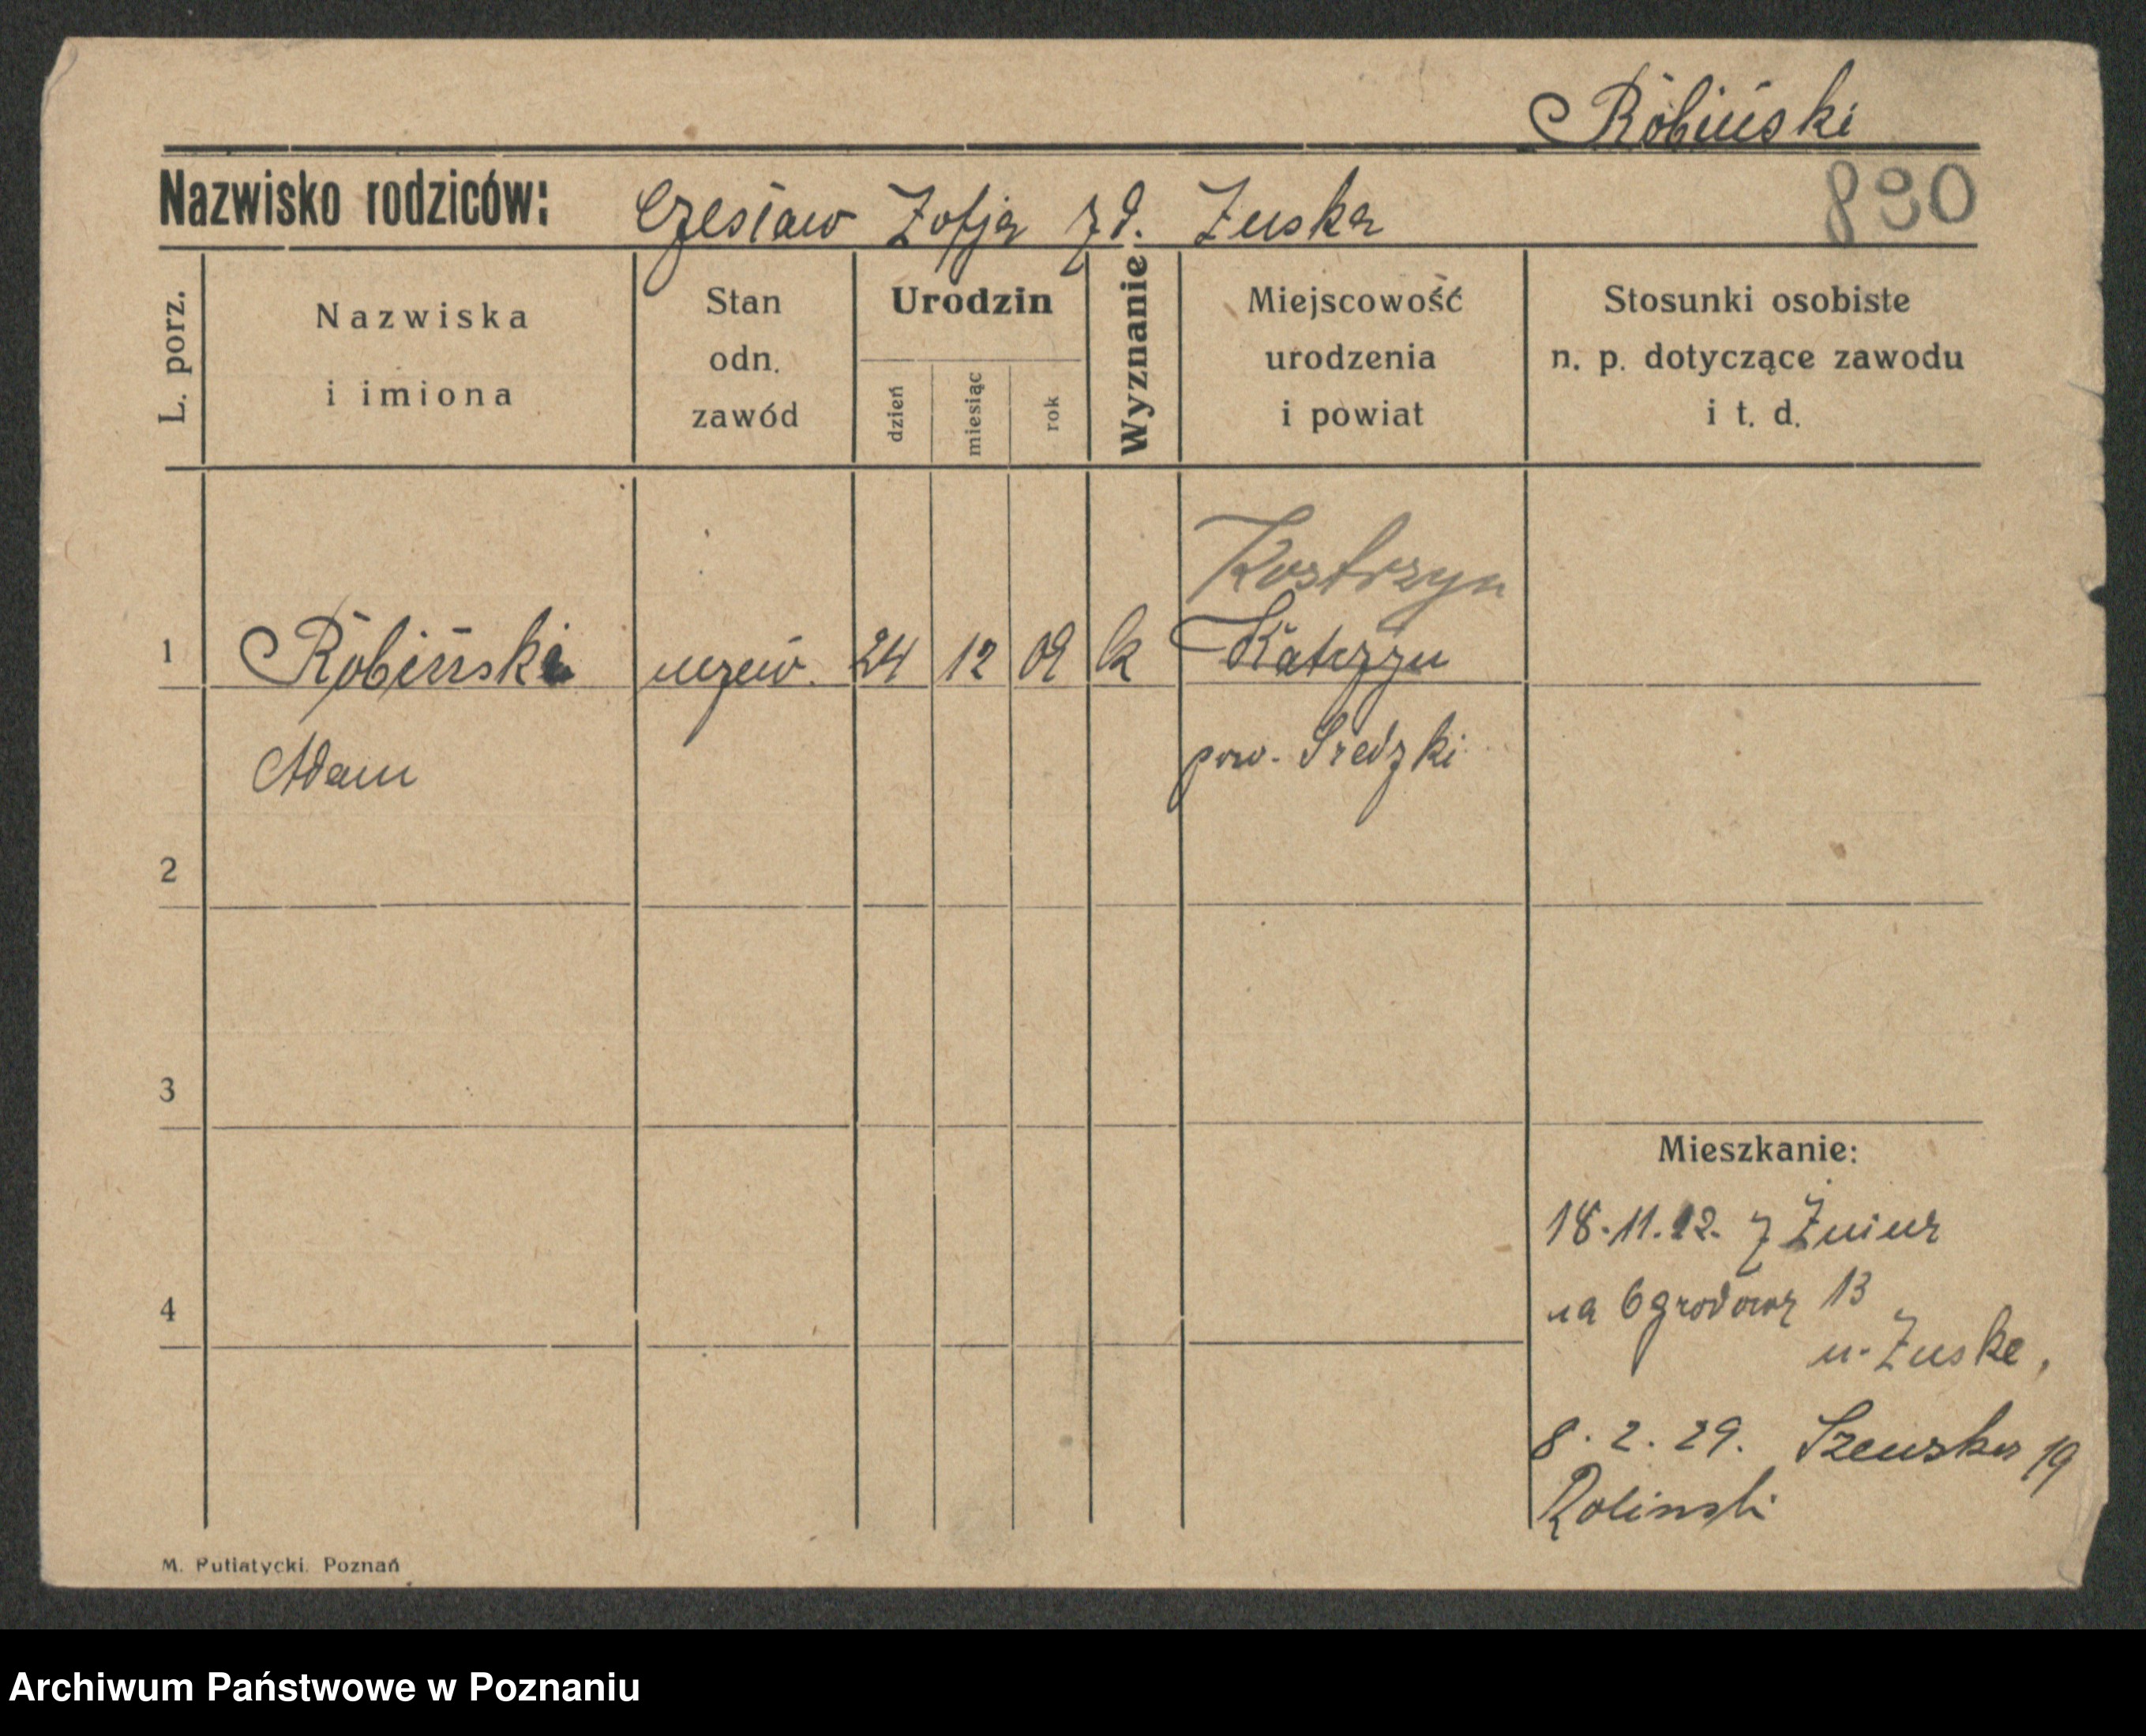 Róbiński
Nazwisko rodziców: Czesław Zofja zd. Zuska
890
L. porz.
Nazwiska
i imiona
Stan
odn.
zawód
Urodzin
dzień
miesiąc
rok
Wyznanie
Miejscowość
urodzenia
i powiat
Stosunki osobiste
n. p. dotyczące zawodu
i t. d.
Kostrzyn
1 Róbiński uczeń. 24 12 09 k
Adam
pow. Średzki
2
3
Mieszkanie:
18. 11. 22. z Żnina
4
na Ogrodową 13
u. Zuske,
8. 2. 29. Szewska 19
Rolinski
M. Putiatycki. Poznań
Archiwum Państwowe w Poznaniu